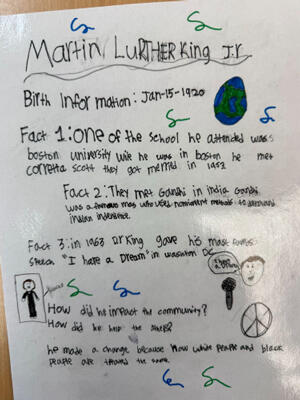 Martin LuRTHER King J.r
Birth Information: Jan-15-1920
Fact 1: one of the school he attended was
boston university wife he was in boston he met
corretta scott they got merried in 1953
Fact 2: They met Gandhi in india Gandhi
was a famous man who used nonviolent methods to
indian
Fact 3: in 1963 Dr King gave his most famous
speech "I have a Dream" in DC
I have
a Dream
How did he impact the community?
How did he help the others?
he made a change because Now white people and black
people are the same